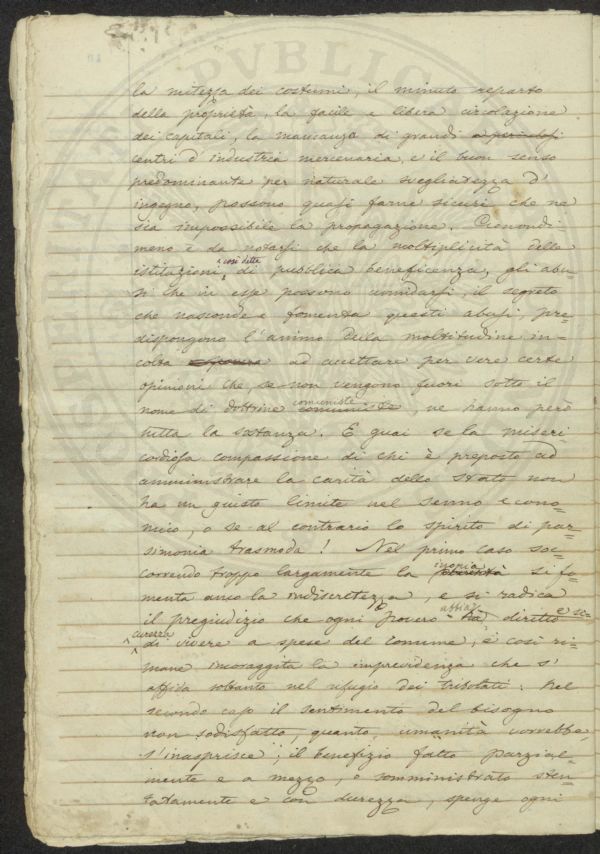 la mitezza dei costumi, il minuto reparto
della proprietà, la facile e libera circolazione
dei capitali, la mancanza di grandi
centri d'industria mercenaria, e il buon senso
predominante per naturale svegliatezza d'
ingegno, possono quasi farne sicuri che ne
sia impossibile la propagazione. Cionondi-
meno è da notarsi che la moltiplicità delle
istituzioni, così dette di pubblica beneficenza, gli abu-
si che in esse possono annidarsi, il segreto
che nasconde e fomenta questi abusi, pre-
dispongono l'animo della moltitudine in-
colta ad accettare per vere certe
opinioni che se non vengono fuori sotto il
nome di dottrine comuniste, ne hanno però
tutta la sostanza. E guai se la miseri
cordiosa compassione di chi è preposto ad
amministrare la carità dello Stato non
ha un giusto limite nel senno econo-
mico, o se al contrario lo spirito di par-
simonia trasmoda! Nel primo caso soc-
correndo troppo largamente la inopia si fo-
menta anco la indiscretezza, e si radica
il pregiudizio che ogni povero abbia diritto e si-
curezza di vivere a spese del comune, e così ri-
mane incoraggita la imprevidenza che s'
affida soltanto nel rifugio dei tribolati. Nel
secondo caso il sentimento del bisogno
non sodisfatto, quanto umanità vorrebbe,
s'inasprisce; il benefizio fatto parzial-
mente e a mezzo, o somministrato sten-
tatamente e con durezza, spenge ogni